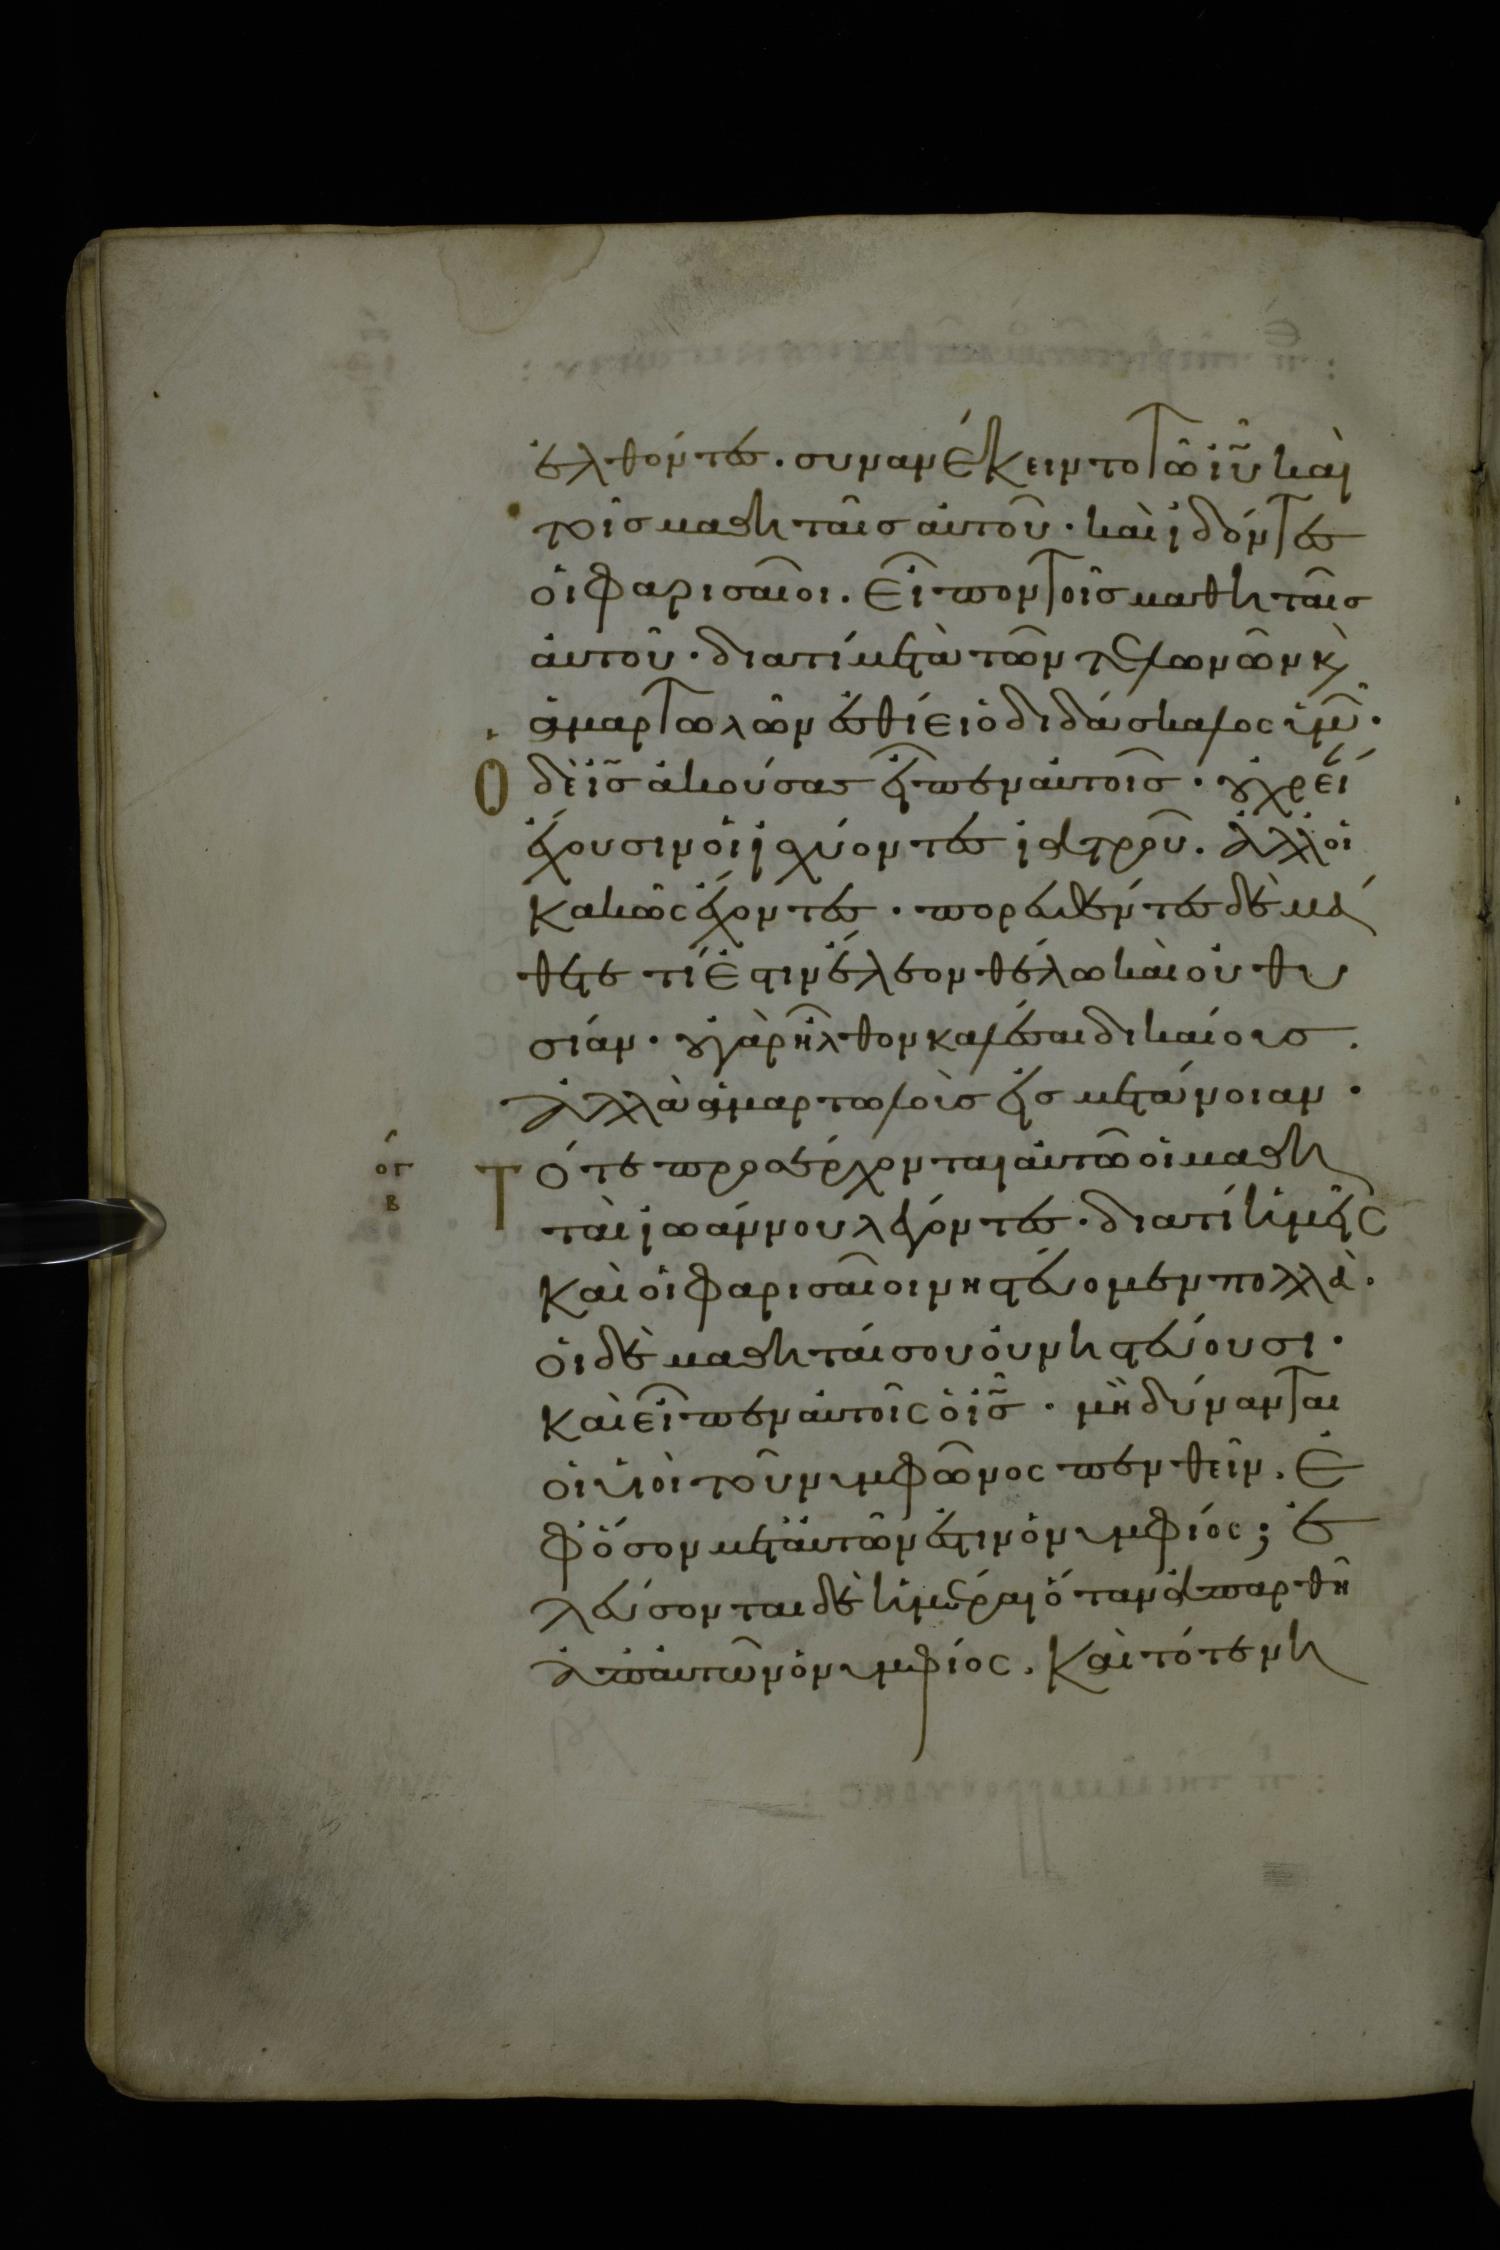 ἐλθόντες. συνανέκειντο τῶ ἰῦ καὶ
τοῖς μαθηταῖς αὐτοῦ· καὶ ἰδόντες
οἱ φαρισαῖοι. εἶπον τοῖς μαθηταῖς
αὐτοῦ· διατί μετὰ τῶν τελωνῶν κ
ἁμαρτωλῶν ἐσθίει ὁ διδάσκαλος ὑμῶ·
Ὁ δὲ ἰς ἀκούσας εἶπεν αὐτοῖς· οὐ χρεί
ἔχουσιν οἱ ἰσχύοντες ἰατροῦ. ἀλλ οἱ
κακῶς ἔχοντες · πορευθέντες δὲ μά
θετε τί ἐστιν ἔλεον θέλω καὶ οὐ θυ
σίαν · οὐ γὰρ ἦλθον καλέσαι δικαίους .
ἀλλὰ ἁμαρτωλοὺς εἰς μετάνοιαν ·
ογ Τότε προσέρχονται αὐτῶ οἱ μαθη
β ταὶ ἰωάννου λέγοντες · διατί ἡμεῖς
καὶ οἱ φαρισαῖοι νηστεύομεν πολλὰ ·
οἱ δὲ μαθηταί σου οὐ νηστεύουσι ·
καὶ εἶπεν αὐτοῖς ὁ ἰς · μὴ δύνανται
οἱ υἱοὶ τοῦ νυμφῶνος πενθεῖν . ἐ
φ ὅσον μετ αὐτῶν ἐστιν ὁ νυμφίος ; ἐ
λεύσονται δὲ ἡμέραι ὅταν ἀπαρθῆ
ἀπ αὐτῶν ὁ νυμφίος . καὶ τότε νη